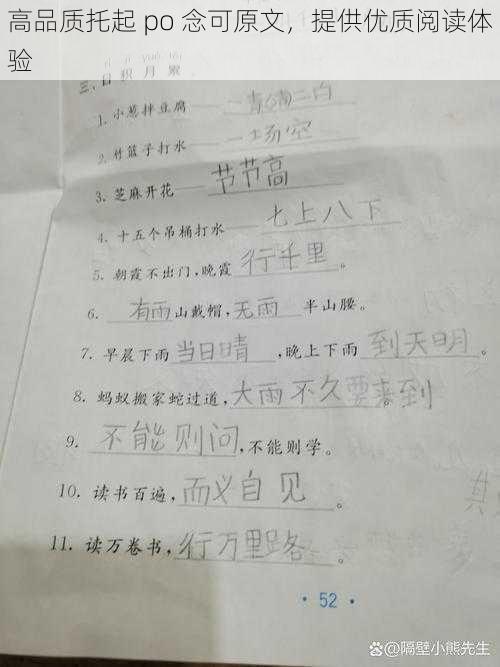 高品质托起 po 念可原文，提供优质阅读体
验
三、日积月累
1. 小葱拌豆腐——一青二白
2. 竹篮子打水——一场空
3. 芝麻开花——节节高
4. 十五个吊桶打水——七上八下
5. 朝霞不出门，晚霞行千里。
6. 有雨山戴帽，无雨半山腰。
7. 早晨下雨当日晴，晚上下雨到天明。
8. 蚂蚁搬家蛇过道，大雨不久要来到
9. 不能则问，不能则学。
10. 读书百遍，而义自见。
11. 读万卷书，行万里路。
• 52 •
其
@隔壁小熊先生